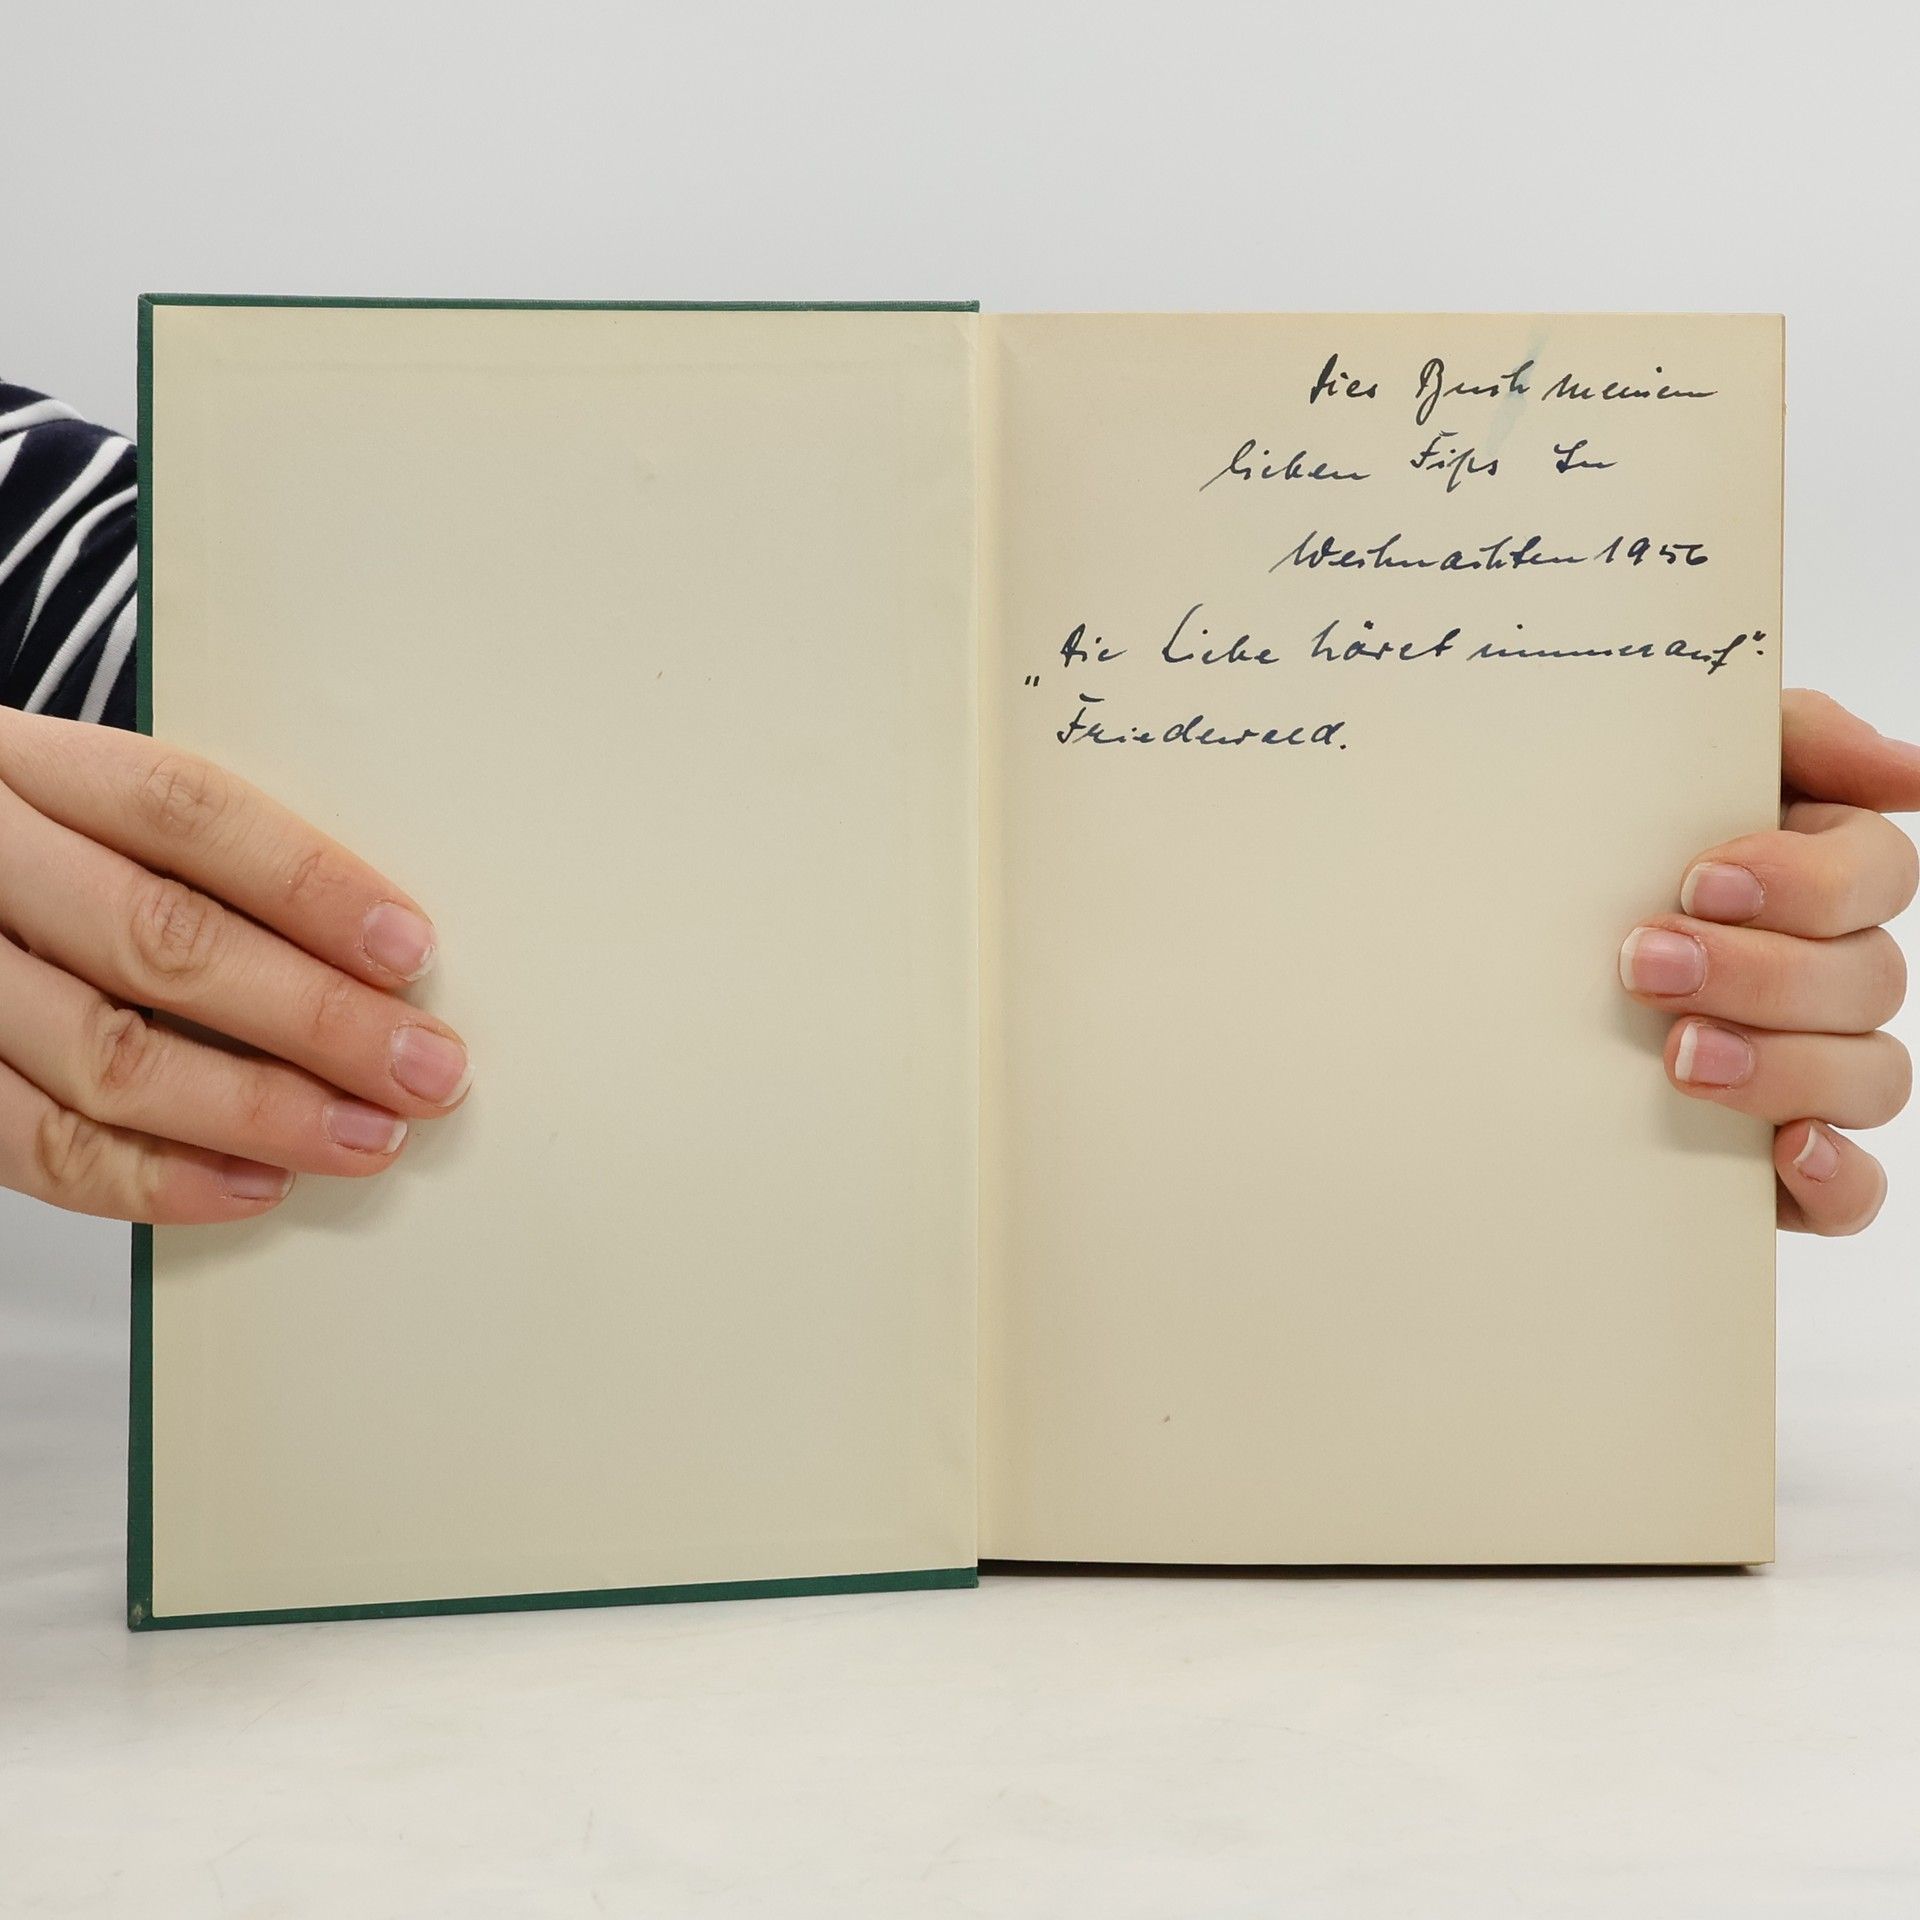 Dies Buch meinem
lieben Fips zu
Weihnachten 1956
„Die Liebe höret nimmer auf".
Friedewald.